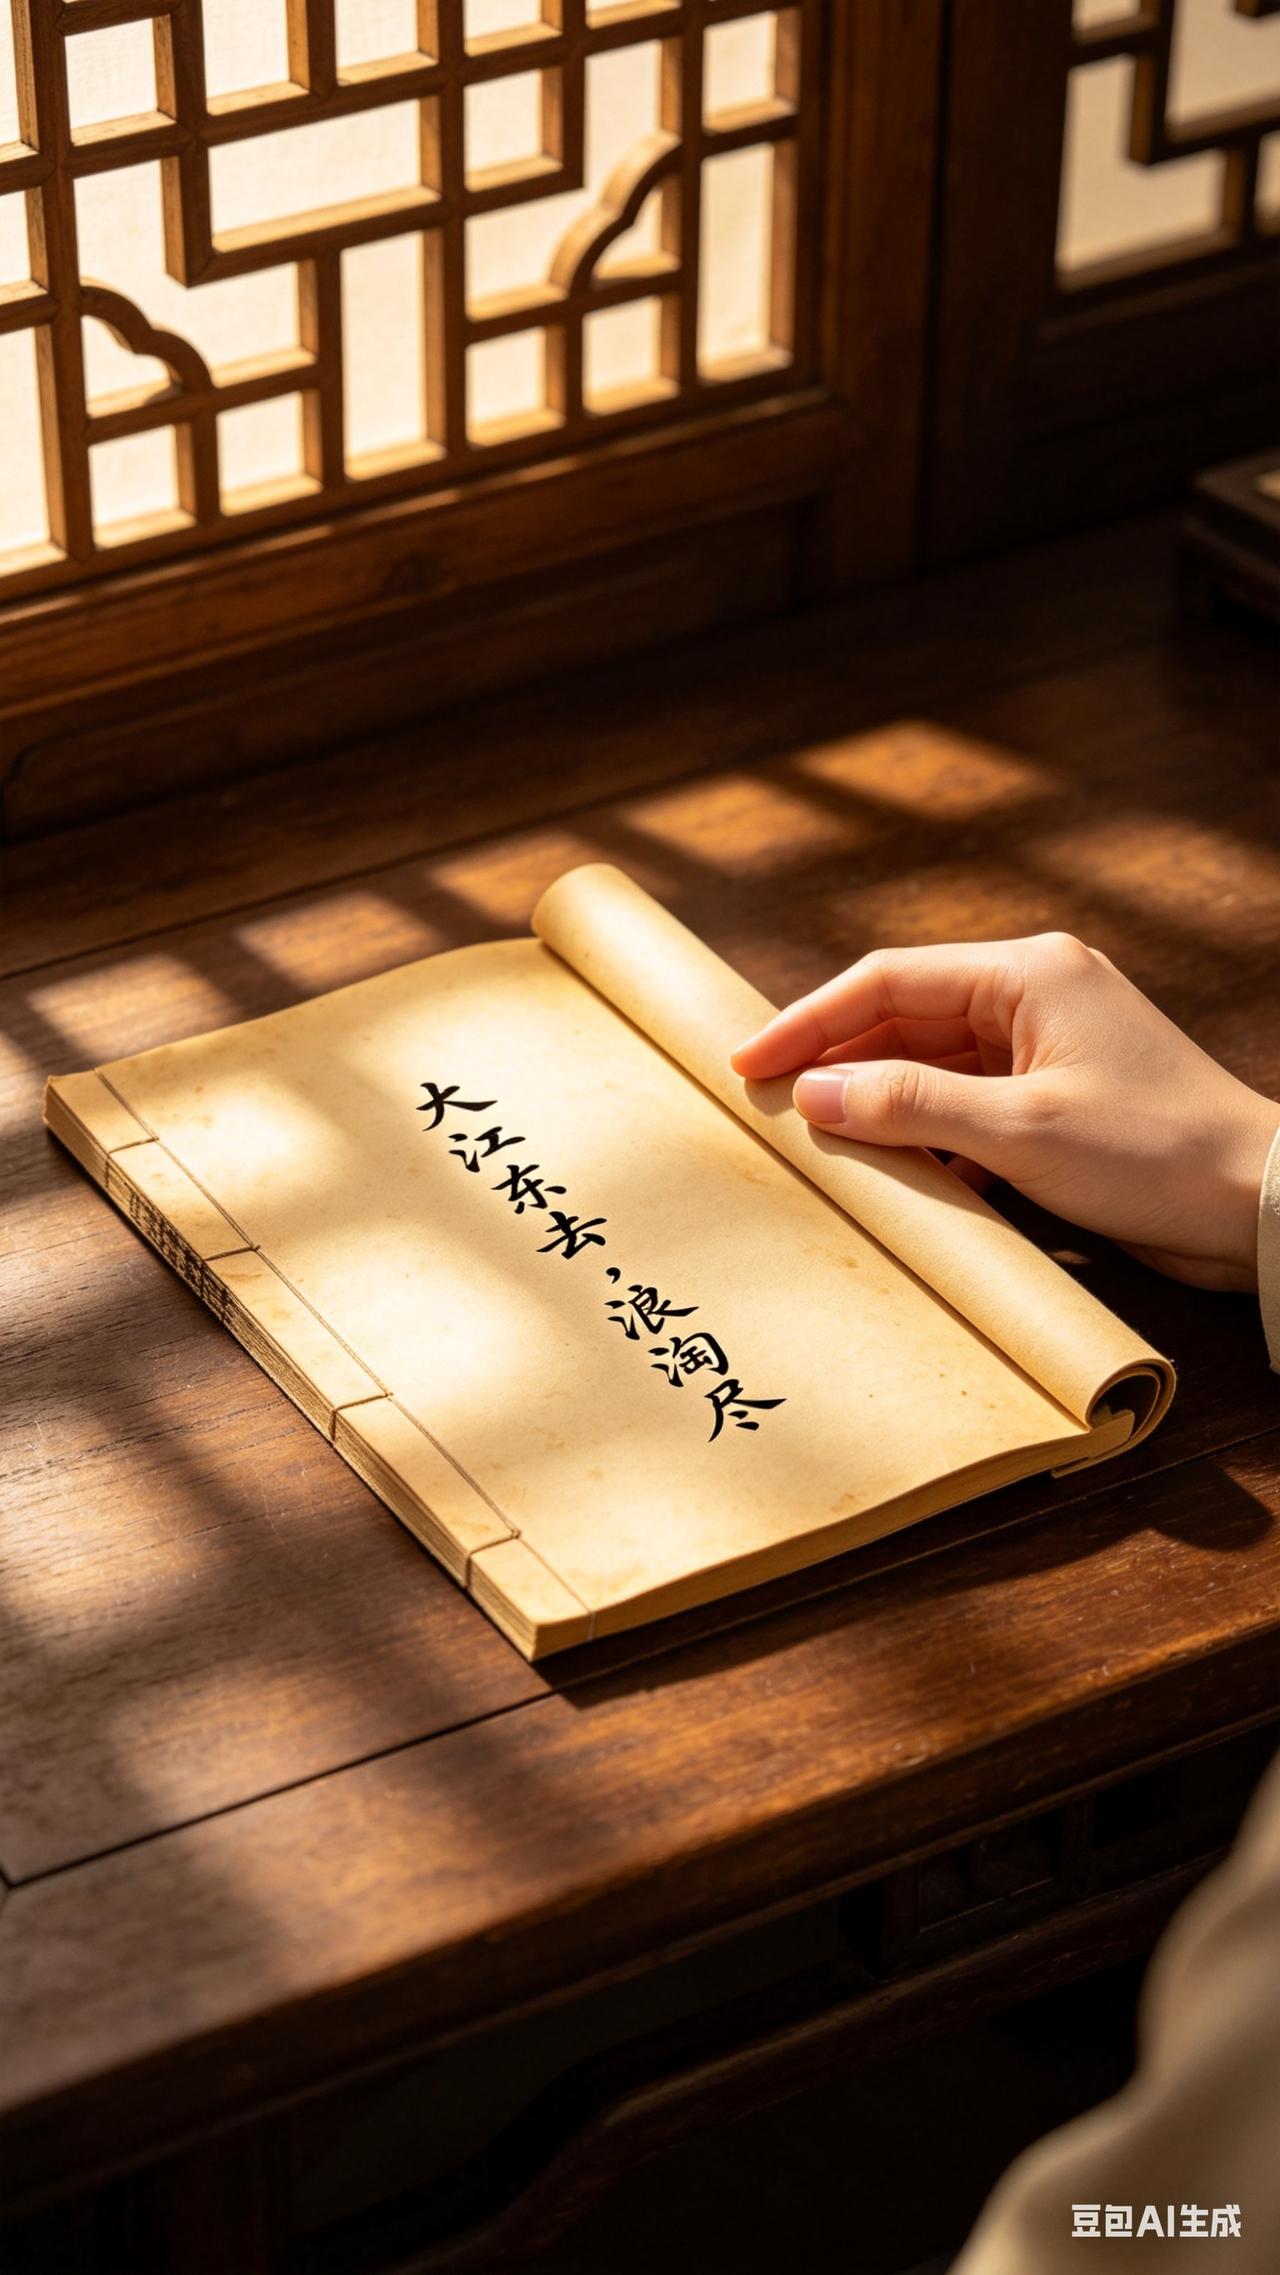 大江东去，浪淘尽
豆包AI生成